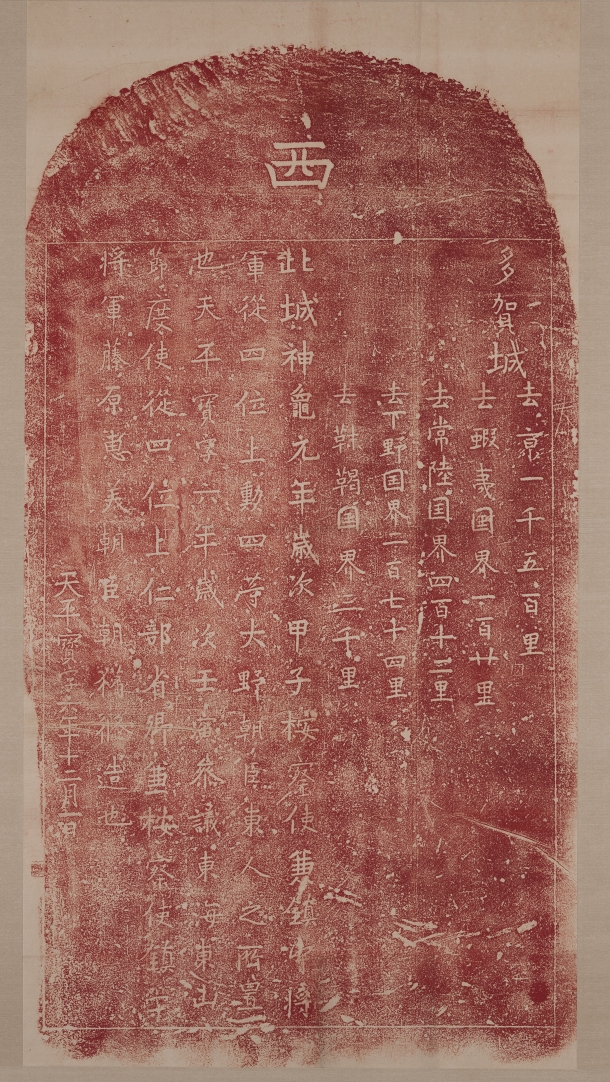 西
多賀城
去京一千五百里
去蝦夷国界一百廿里
去常陸国界四百十二里
去下野国界二百七十四里
去靺鞨国界三千里
此城神龜元年歳次甲子桉察使兼鎮守將
軍從四位上勳四等大野朝臣東人之所置
也天平寳字六年歳次壬寅參議東海東山
節度使從四位上仁部省卿兼桉察使鎮守
將軍藤原惠美朝臣朝獦修造也
天平寳字六年十二月一日